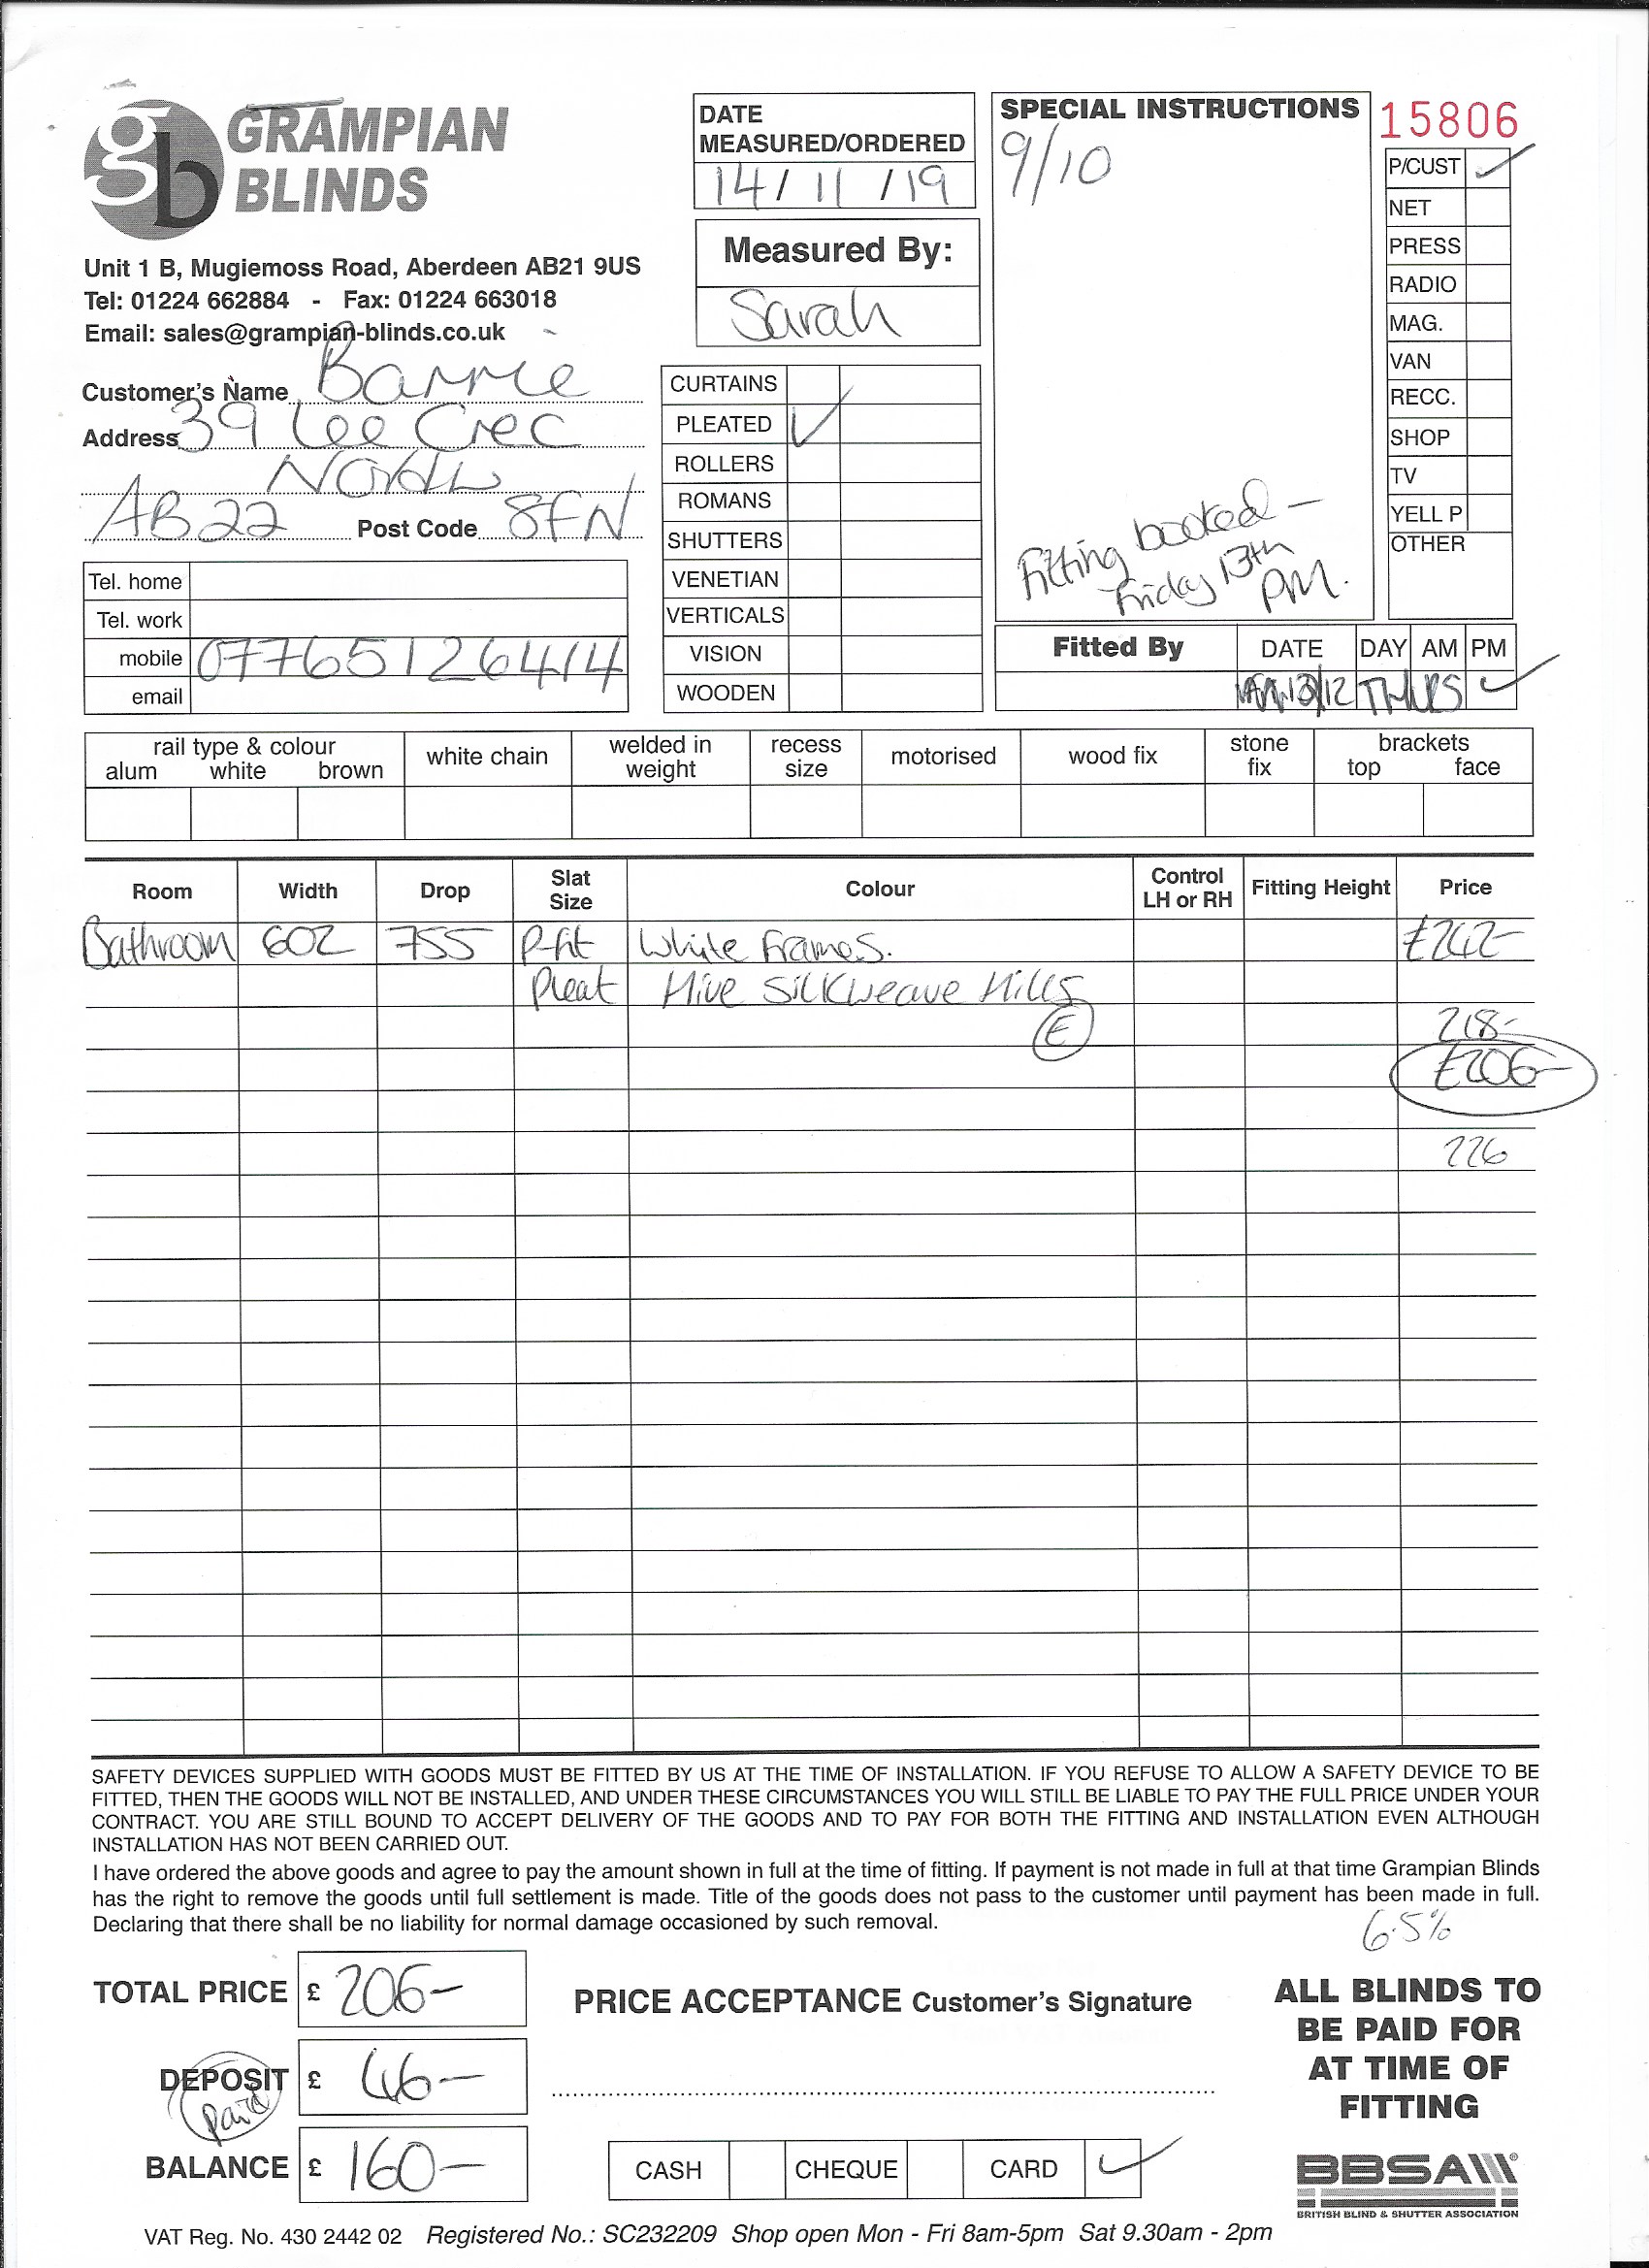 gb GRAMPIAN
BLINDS
Unit 1 B, Mugiemoss Road, Aberdeen AB21 9US
Tel: 01224 662884 - Fax: 01224 663018
Email: sales@grampian-blinds.co.uk
Customer's Name Barrie
Address 39 Lee Crec
North
AB22 Post Code 8FN
Tel. home
Tel. work
mobile 07765126414
email
DATE
MEASURED/ORDERED
14/11/19
Measured By:
Sarah
CURTAINS
PLEATED ✓
ROLLERS
ROMANS
SHUTTERS
VENETIAN
VERTICALS
VISION
WOODEN
SPECIAL INSTRUCTIONS
9/10
Fitting booked -
Friday 13th
PM.
15806
P/CUST ✓
NET
PRESS
RADIO
MAG.
VAN
RECC.
SHOP
TV
YELL P
OTHER
Fitted By DATE DAY AM PM
13/12 THURS ✓
rail type & colour
alum white brown
white chain
welded in
weight
recess
size
motorised
wood fix
stone
fix
brackets
top face
Room Width Drop Slat Size Colour Control LH or RH Fitting Height Price
Bathroom 602 755 P-fit White Frames. £242-
Pleat Hive Silkweave Hills
E
218-
£206-
226
SAFETY DEVICES SUPPLIED WITH GOODS MUST BE FITTED BY US AT THE TIME OF INSTALLATION. IF YOU REFUSE TO ALLOW A SAFETY DEVICE TO BE
FITTED, THEN THE GOODS WILL NOT BE INSTALLED, AND UNDER THESE CIRCUMSTANCES YOU WILL STILL BE LIABLE TO PAY THE FULL PRICE UNDER YOUR
CONTRACT. YOU ARE STILL BOUND TO ACCEPT DELIVERY OF THE GOODS AND TO PAY FOR BOTH THE FITTING AND INSTALLATION EVEN ALTHOUGH
INSTALLATION HAS NOT BEEN CARRIED OUT.
I have ordered the above goods and agree to pay the amount shown in full at the time of fitting. If payment is not made in full at that time Grampian Blinds
has the right to remove the goods until full settlement is made. Title of the goods does not pass to the customer until payment has been made in full.
Declaring that there shall be no liability for normal damage occasioned by such removal.
6.5%
TOTAL PRICE £ 206-
DEPOSIT £ 46-
paid
BALANCE £ 160-
PRICE ACCEPTANCE Customer's Signature
CASH CHEQUE CARD ✓
ALL BLINDS TO
BE PAID FOR
AT TIME OF
FITTING
BBSA
BRITISH BLIND & SHUTTER ASSOCIATION
VAT Reg. No. 430 2442 02 Registered No.: SC232209 Shop open Mon - Fri 8am-5pm Sat 9.30am - 2pm